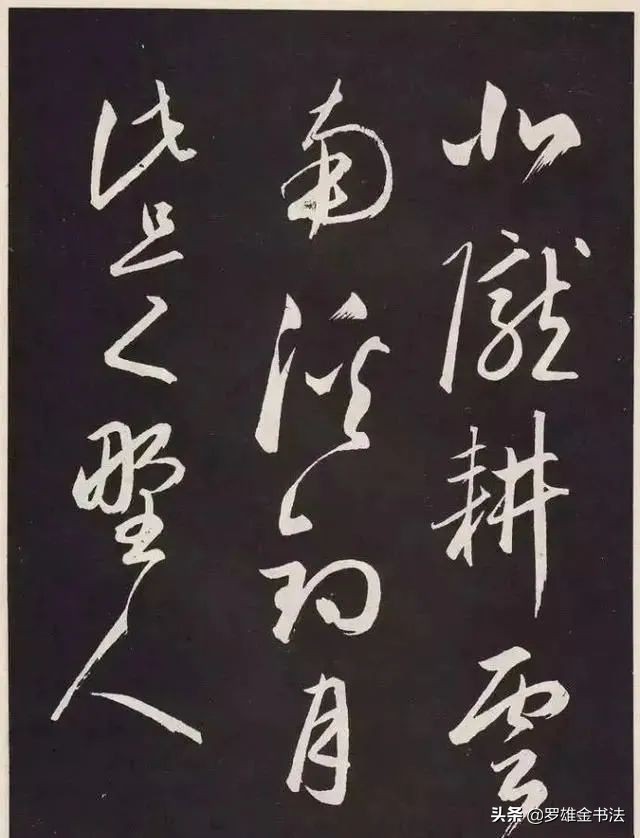 北隴耕雲
南溪釣月
此是野人
头条 @罗雄金书法